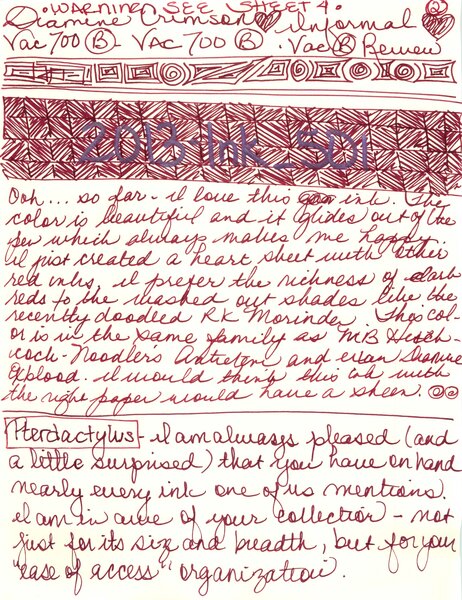 ·WARNING SEE SHEET 4· 2
Diamine Crimson Informal
Vac 700 B - Vac 700 B · Vac B Review
2013-Ink_501
Ooh... so far - I love this ink. The
color is beautiful and it glides out of the
pen which always makes me happy.
I just created a heart sheet with other
red inks, I prefer the richness of dark
reds to the washed out shades like the
recently doodled RK Morinda. This col-
or is in the same family as MB Hitch-
cock - Noodlers Antietam and even Diamine
Oxblood. I would think this ink with
the right paper would have a sheen.
Pterdactylus - I am always pleased (and
a little surprised) that you have on hand
nearly every ink one of us mentions.
I am in awe of your collection - not
just for its size and breadth, but for your
"ease of access" organization.